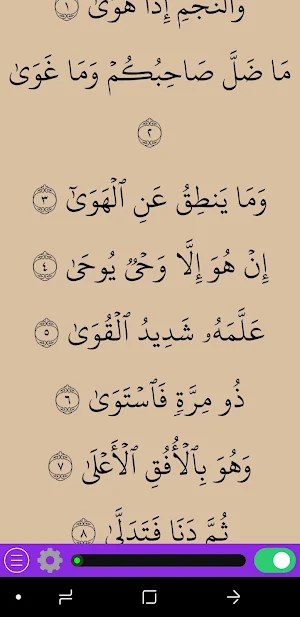 وَٱلنَّجۡمِ إِذَا هَوَىٰ ١
مَا ضَلَّ صَاحِبُكُمۡ وَمَا غَوَىٰ
٢
وَمَا يَنطِقُ عَنِ ٱلۡهَوَىٰٓ ٣
إِنۡ هُوَ إِلَّا وَحۡيٞ يُوحَىٰ ٤
عَلَّمَهُۥ شَدِيدُ ٱلۡقُوَىٰ ٥
ذُو مِرَّةٖ فَٱسۡتَوَىٰ ٦
وَهُوَ بِٱلۡأُفُقِ ٱلۡأَعۡلَىٰ ٧
ثُمَّ دَنَا فَتَدَلَّىٰ ٨